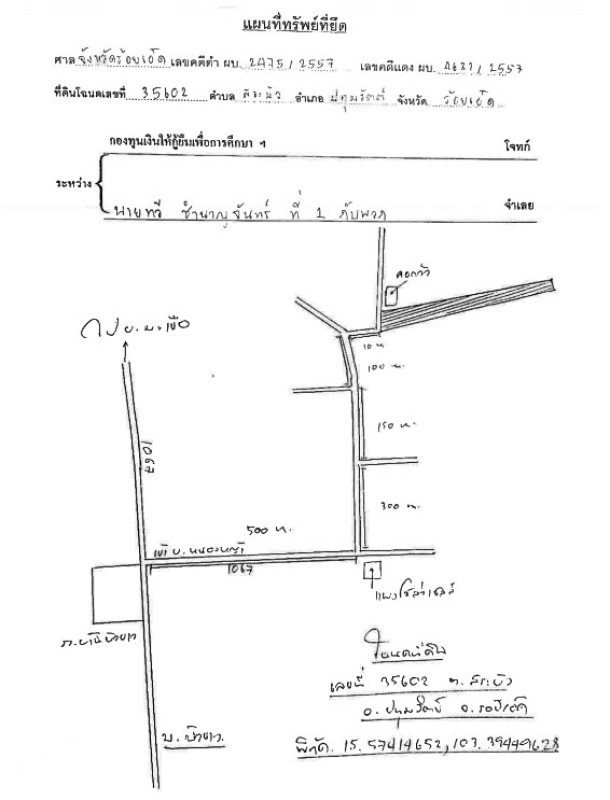 แผนที่ทรัพย์ที่ยึด
ศาล จังหวัดร้อยเอ็ด เลขคดีดำ ผบ. 2475 / 2557 เลขคดีแดง ผบ. 4631 / 2557
ที่ดินโฉนดเลขที่ 35602 ตำบล สระบัว อำเภอ ปทุมรัตต์ จังหวัด ร้อยเอ็ด
กองทุนเงินให้กู้ยืมเพื่อการศึกษา ฯ โจทก์
ระหว่าง
นายทวี ชำนาญจันทร์ ที่ 1 กับพวก จำเลย
คอกวัว
ไป บ.มะเขือ
10 ม.
100 ม.
1067
150 ม.
300 ม.
500 ม.
เข้า บ.หนองหญ้า
1067
แผงโซล่าเซลล์
บ. บัวขาว
โฉนดที่ดิน
เลขที่ 35602 ต. สระบัว
อ. ปทุมรัตต์ จ. ร้อยเอ็ด
พิกัด. 15.57414652, 103.39449628